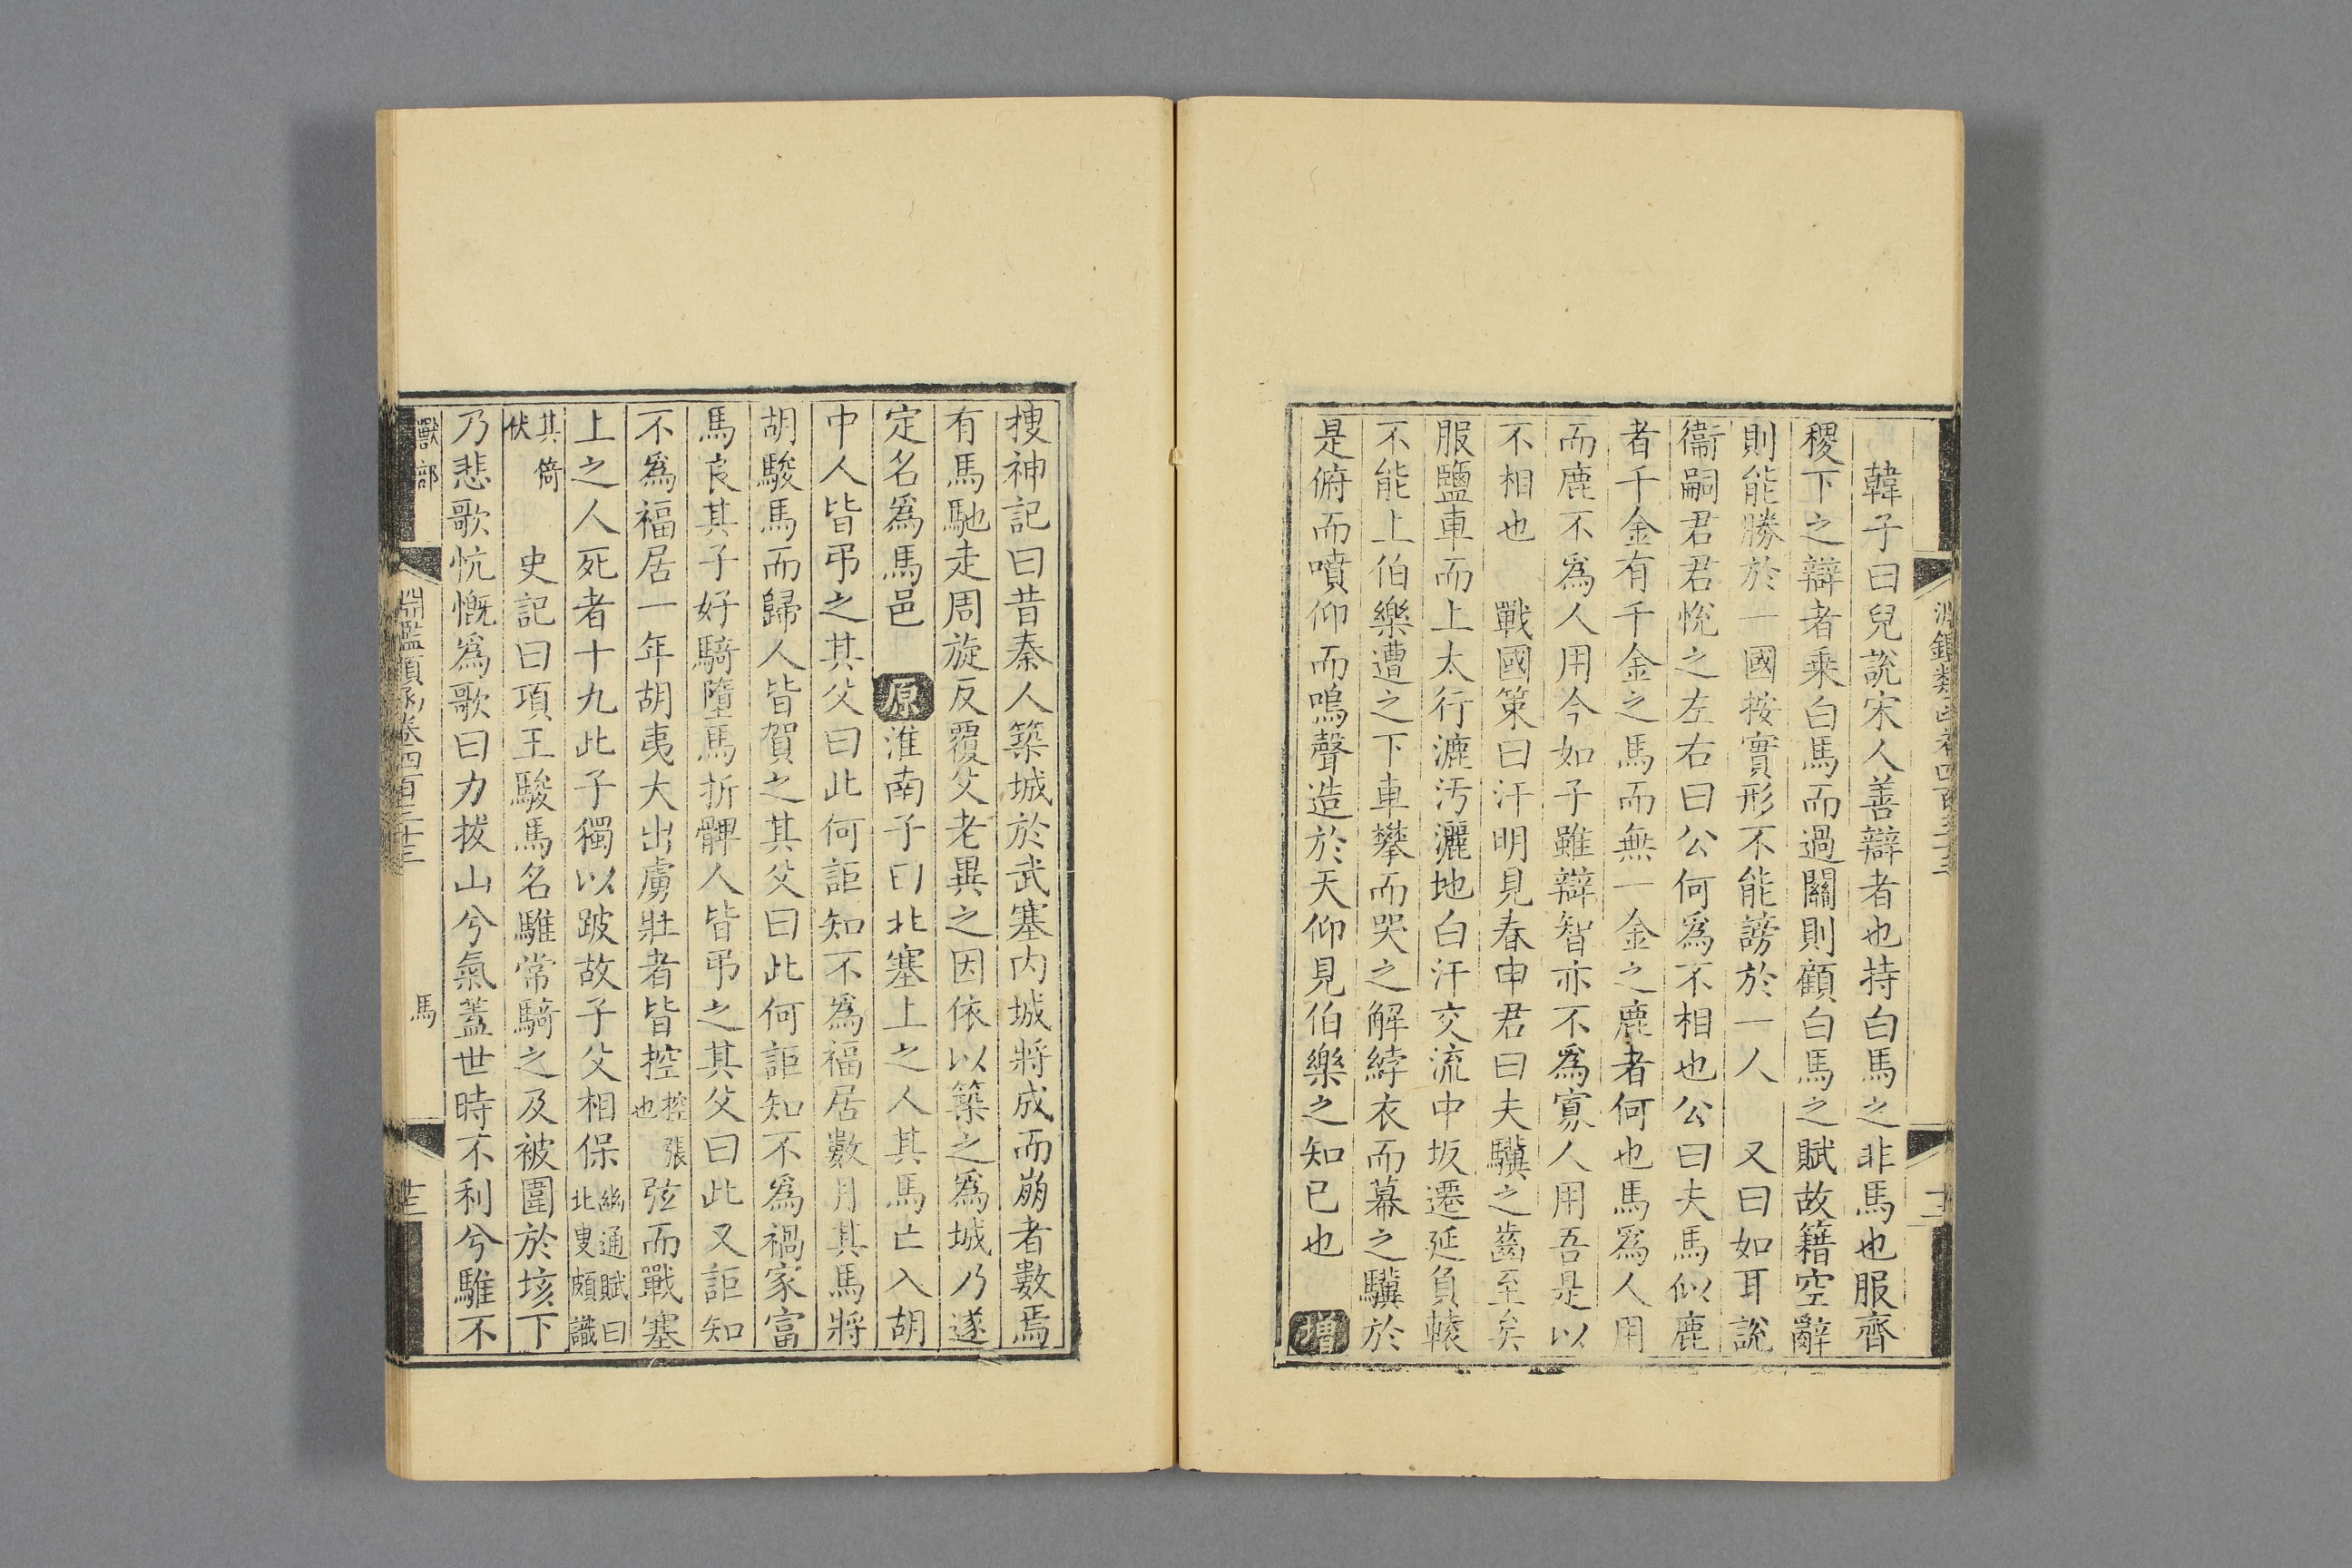 韓子曰兒說宋人善辯者也持白馬之非馬也服齊
稷下之辯者乘白馬而過關則顧白馬之賦故籍空辭
則能勝於一國按實形不能謗於一人　又曰如耳說
衞嗣君君悅之左右曰公何爲不相也公曰夫馬似鹿
者千金有千金之馬而無一金之鹿者何也馬爲人用
而鹿不爲人用今如子雖辯智亦不爲寡人用吾是以
不相也　戰國策曰汗明見春申君曰夫驥之齒至矣
服鹽車而上太行漉汚灑地白汗交流中坂遷延負轅
不能上伯樂遭之下車攀而哭之解紵衣而冪之驥於
是俯而噴仰而鳴聲造於天仰見伯樂之知已也　增
搜神記曰昔秦人築城於武塞内城將成而崩者數焉
有馬馳走周旋反覆父老異之因依以築之爲城乃遂
定名爲馬邑　原淮南子曰北塞上之人其馬亡入胡
中人皆弔之其父曰此何詎知不爲福居數月其馬將
胡駿馬而歸人皆賀之其父曰此何詎知不爲禍家富
馬良其子好騎墮馬折髀人皆弔之其父曰此又詎知
不爲福居一年胡夷大出虜壯者皆控控張也弦而戰塞
上之人死者十九此子獨以跛故子父相保幽通賦曰北叟頗識
其倚伏　史記曰項王駿馬名騅常騎之及被圍於垓下
乃悲歌忼慨爲歌曰力拔山兮氣蓋世時不利兮騅不
獸部　淵鑑類函卷四百三十三　馬　十三